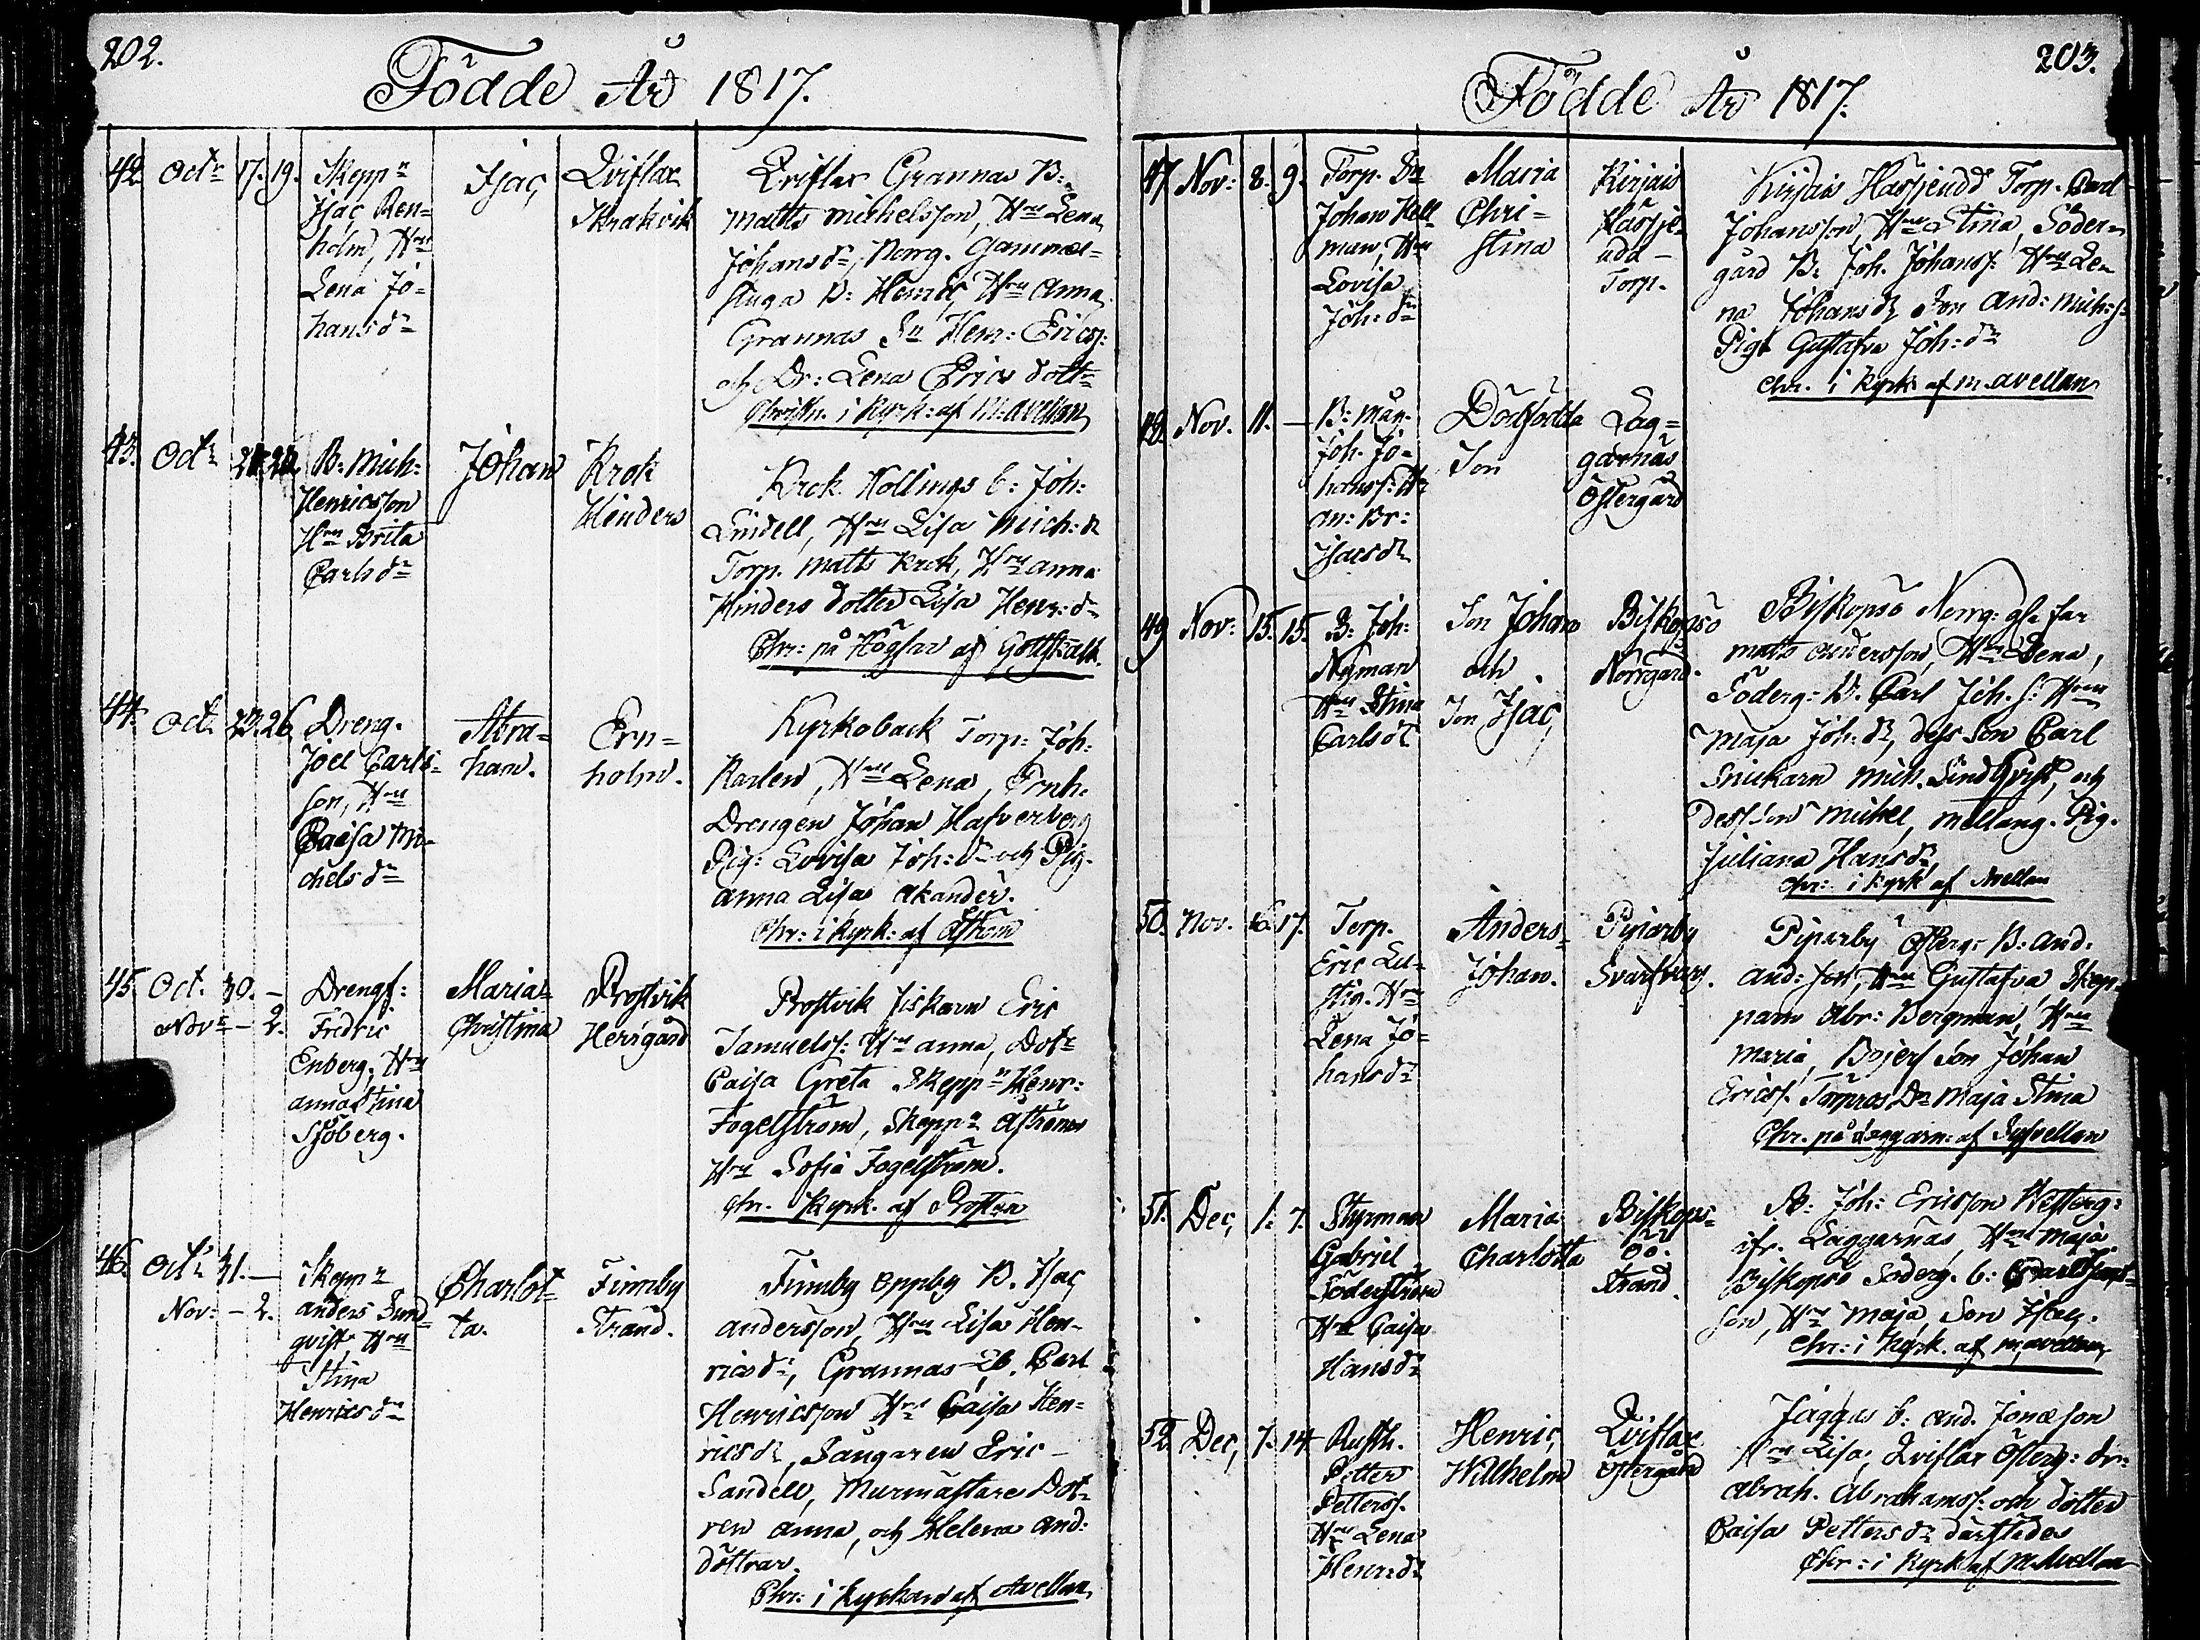 202.
Födde År 1817.
42. Octr 17. 19.
Skeppn
Isac Ren=
holm, Hru
Lena Jo=
hansdr
Isac
Qviflax
Skrakvik
Qviflax Grannas B:
Matts Michelsson, Hru Lena
Johansdr, Norrg. Gammel=
stuga B: Henric, Hru Anna
Grannas Sn Henr: Ericss:
och Dr: Lena Erics dottr
Christn. i kyrk: af M. Avellan
43. Octr
B: Mich:
Henricsson
Hru Brita
Carlsdr
Johan
Krok
Hinders
Krok Nollings b: Joh:
Lindell, Hru Lisa Mich: dr
Torp. Matts Krok, Hru Anna
Hinders dotter Lisa Henr: dr
Chr: på Högsar af Gottskalk.
44. Oct: 26
Dreng.
Joel Carls=
son, Hru
Caisa Mi=
chelsdr
Abra=
ham.
Ern=
holm.
Kyrkoback Torp: Joh:
Karlen, Hru Lena, Ernh.
Drengen Johan Hafverberg
Pig: Lovisa Joh: dr och Pig.
Anna Lisa Akander.
Chr: i kyrk: af Åström
45. Oct. 30. –
Nov: – 2.
Drengs:
Fredric
Enberg, Hru
Anna Stina
Sjöberg.
Maria
Christina
Prostvik
Herrgård
Prostvik fiskarn Eric
Samuelss: Hru Anna, Dotr
Caisa Greta Skeppn Henr:
Fogelström, Skeppn Åström
Hru Sofia Fogelström.
Chr. i kyrk. af Prosten
46. Octr 31. –
Nov: – 2.
Skeppn
Anders Sund
qvist, Hru
Stina
Henricsdr
Charlot=
ta.
Finnby
Strand.
Finnby Oppby B. Isac
Andersson, Hru Lisa Hen=
ricsdr, Grannas B. Carl
Henricsson Hru Caisa Hen=
ricsdr, Sångaren Eric
Sandell, Murmästare Dot=
ren Anna, och Helena And:
döttrar.
Chr: i kyrkan af Avellan
203.
Födde År 1817.
47. Nov: 8. 9.
Torp. Dr
Johan Hell
man, Hru
Lovisa
Joh: dr
Maria
Chri=
stina
Kirjais
Hassje=
udd
Torp.
Kirjais Hassjeudd Torp. Carl
Johansson, Hru Stina, Söder=
gård B: Joh. Johanss: Hru Le=
na Johansdr Son And: Mich: s:
Pig: Gustafva Joh: dr
Chr. i kyrk af M. Avellan
48. Nov. 11. –
B: Måg.
Joh. Jo=
hanss: Hr
An: Br:
Isacsdr
Dödfödda
Son
Lag=
garnäs
Östergård
49 Nov: 15. 15.
B: Joh:
Nyman
Hru Stina
Carlsdr
Son Johan
och
Son Isac
Biskopsö
Norrgård.
Biskopsö Norrg: gl. far
Matts Andersson, Hru Lena,
Söderg: B. Carl Joh. s: Hru
Maja Joh. dr, dess Son Carl
Snickarn Mich. Lindqvist, och
dess Son Michel, Mellang. Pig.
Juliana Hansdr
Chr: i kyrk af Avellan
50. Nov. 16. 17.
Torp.
Eric Lu=
stig. Hru
Lena Jo=
hansdr
Anders
Johan.
Piparby
Svartvarf.
Piparby Österg: B: And.
And: son, Hru Gustafva Skep
parn Abr: Bergman, Hru
Maria, Bojers Son Johan
Ericss. Torpros Dr Maja Stina
Chr. på af
51. Dec, 1: 7.
Styrman
Gabriel
Söderström
Hru Caisa
Hansdr
Maria
Charlotta
Biskops=
öö.
Strand.
B: Joh: Ericsson Westerg:
ifr. Laggarnäs, Hru Maja
Biskopsö Söderg. b: Carl
son, Hru Maja, Son Isac.
Chr: i kyrk. af M. Avellan
52. Dec, 7. 14.
Rusth.
Petter
Petterss.
Hru Lena
Henr: dr
Henric
Willhelm
Qviflax
Östergård
Jaggas b: And. Jonæson
Hru Lisa, Qviflax Österg: dr:
Abrah. Abrahamss: och dotter
Caisa Pettersdr därstedes
Chr: i kyrk af M. Avellan